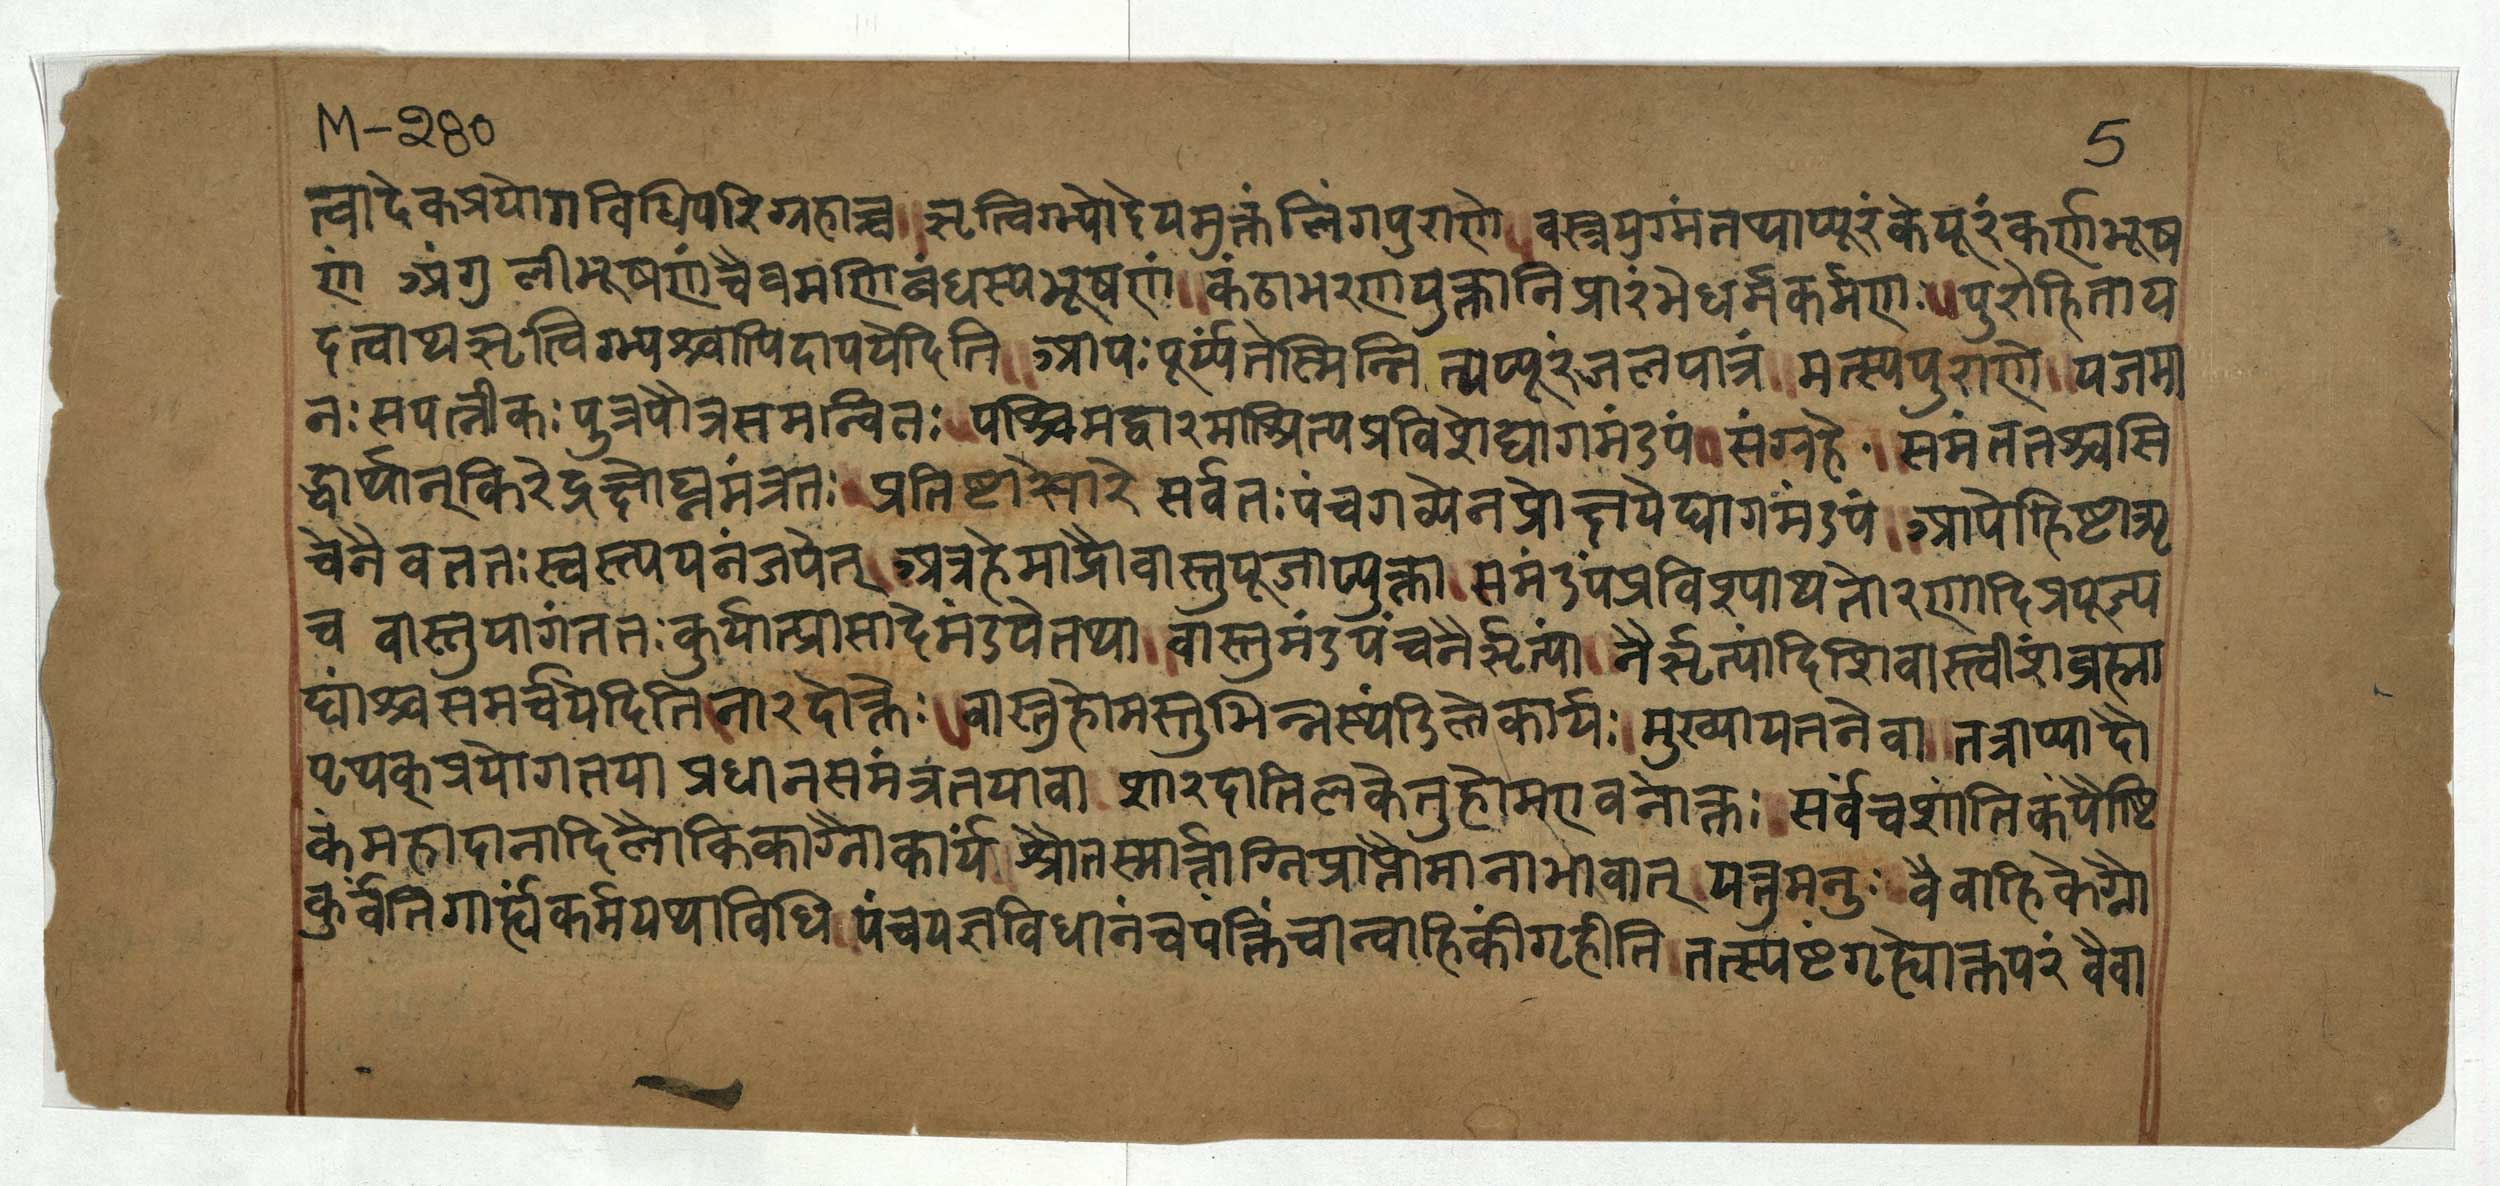 M-२८०
5
त्वादेकप्रयोगविधिपरिग्रहाच्च ॥ ऋत्विग्भ्योदेयमुक्तं लिंगपुराणे ॥ वस्त्रयुग्मंतथाप्पूरंकेयूरंकर्णभूष
णं अंगुलीभूषणंचैवमणिबंधस्यभूषणं ॥ कंठाभरणयुक्तानिप्रारंभेधर्मकर्मणः ॥ पुरोहिताय
दत्वाथऋत्विग्भ्यश्चापिदापयेदिति ॥ आपःपूर्य्यतेस्मिन्नित्यप्पूरंजलपात्रं ॥ मत्स्यपुराणे ॥ यजमा
नःसपत्नीकःपुत्रपौत्रसमन्वितः ॥ पश्चिमद्वारमाश्रित्यप्रविशेद्यागमंडपं ॥ संग्रहे ॥ समंततश्चसि
द्धार्थान्किरेद्रक्षोघ्नमंत्रतः ॥ प्रतिष्टासारे सर्वतःपंचगव्येनप्रोक्षयेद्यागमंडपं ॥ आपोहिष्टाऋ
चेनैवततःस्वस्त्ययनंजपेत् ॥ अत्रहेमाद्रौवास्तुपूजाप्युक्ता ॥ समंडपंप्रविश्याथतोरणादिप्रपूज्य
च वास्तुयागंततःकुर्यात्प्रासादेमंडपेतथा ॥ वास्तुमंडपंचनैर्ऋत्यां नैर्ऋत्यांदिशिवास्त्वीशंब्रह्मा
द्यांश्चसमर्च्चयेदितिनारदोक्तेः ॥ वास्तुहोमस्तुभिन्नस्थंडिलेकार्यः ॥ मुख्यायतनेवा ॥ तत्राप्यादौ
पृथक्प्रयोगतया प्रधानसमंत्रतयावा ॥ शारदातिलकेतुहोमएवनोक्तः ॥ सर्वंचशांतिकंपौष्टि
कंमहादानादिलौकिकाग्नौकार्यं ॥ श्रौतस्मार्त्ताग्निप्राप्तौमानाभावात् ॥ यत्तुमनुः वैवाहिकेग्नौ
कुर्वीतगार्ह्यंकर्मयथाविधि ॥ पंचयज्ञविधानंचपंक्तिंचान्वाहिकींगृहीति ॥ तत्स्पष्टंगृह्योक्तपरं वैवा